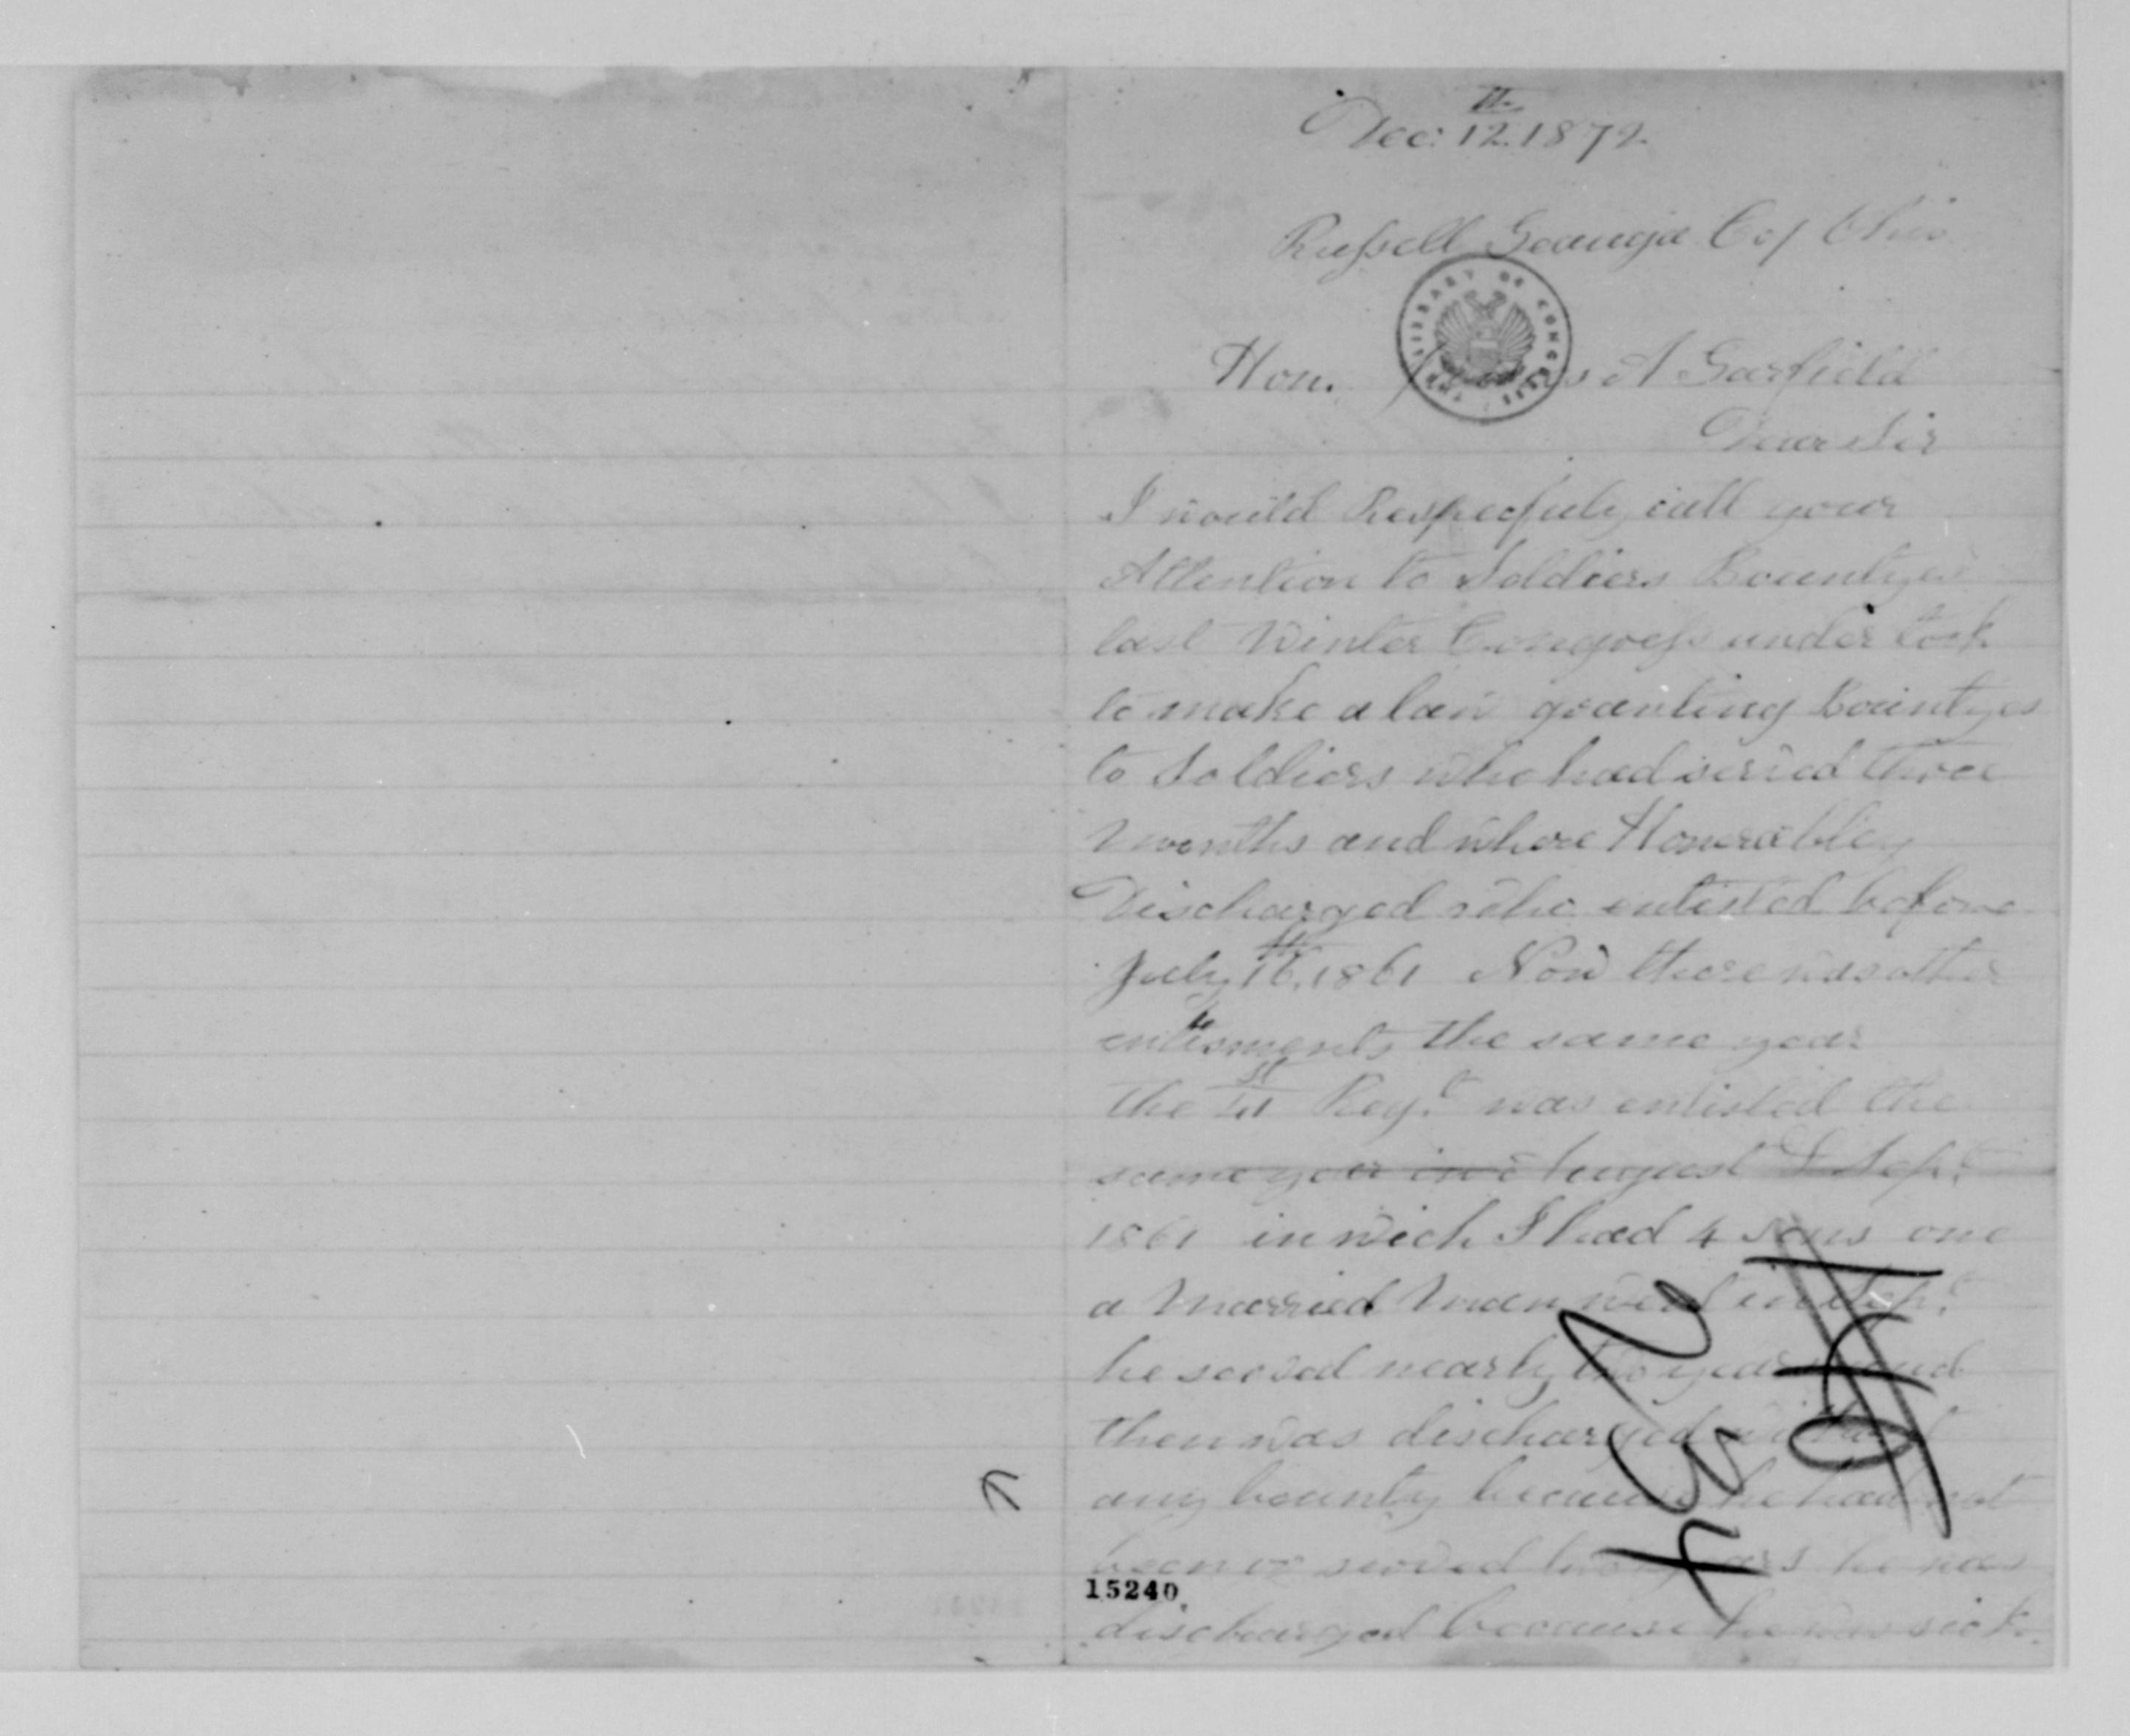 Dec: 12th 1872
Russell Geauga Co/ Ohio
Hon. James A Garfield
Dear Sir
THE LIBRARY OF CONGRESS
I would Respecfuly call your
Attention to Soldiers Bountyes
last Winter Congress under took
to make a law granting Bountyes
to Soldiers who had served three
Months and where Honorabley
Discharged who entisted before
July 16th 1861 Now there was other
entisments the same year
the Regt was entisted the
same year in August & Sept
1861 in wich I had 4 sons one
a Married Man went in Sept
he served nearly two years and
then was discharged without
any bounty because he had not
been or served two years he was
discharged because he was sick
15240